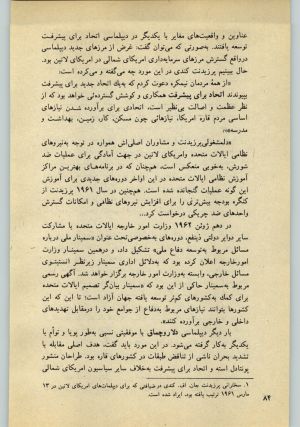 عناوین و واقعیت‌های مغایر با یکدیگر در دیپلماسی اتحاد برای پیشرفت
توسعه یافتند. به‌صورتی که می‌توان گفت: غرض از مرزهای جدید دیپلماسی
درواقع گسترش مرزهای سرمایه‌داری امریکای شمالی در امریکای لاتین بود.
حال ببینیم پرزیدنت کندی در این مورد چه می‌گفته و می‌کرده است:
«از همهٔ مردمان نیمکره دعوت کردم که به‌یک اتحاد جدید برای پیشرفت
بپیوندند اتحاد برای پیشرفت همکاری و کوشش گسترده‌ئی خواهد بود که از
نظر عظمت و اصالت بی‌نظیر است، اتحادی برای برآورده شدن نیازهای
اساسی مردم قارهٔ امریکا، نیازهائی چون مسکن، کار، زمین، بهداشت و
مدرسه»۱
«دلمشغولی پرزیدنت و مشاوران اصلی‌اش همواره در توجه به‌نیروهای
نظامی ایالات متحده وامریکای لاتین در جهت آمادگی برای عملیات ضد
شورش، به‌خوبی منعکس است، هم‌چنان که در برنامه‌های بهترین مراکز
آموزش نظامی ایالات متحده در این اواخر دوره‌های جدیدی برای آموزش
این گونه عملیات گنجانده شده است. هم‌چنین در سال ۱۹۶۱ پرزیدنت از
کنگره بودجه بیش‌تری را برای افزایش نیروهای نظامی و امکانات گسترش
واحدهای ضد چریکی درخواست کرد...
و در ژوئن ۱۹۶۲ وزارت امور خارجه ایالات متحده با مشارکت
سایر دوایر دولتی ذینفع، دوره‌های به‌خصوصی‌تحت عنوان «سمینار ملی درباره
مسائل مربوط به‌توسعه دفاع ملی» تشکیل داد، و دهمین سمینار وزارت
امورخارجه اعلان کرده بود که به‌دلائل اداری سمینار زیرنظر انستیتوی
مسائل خارجی، وابسته به‌وزارت امور خارجه برگزار خواهد شد. آگهی رسمی
مربوط به‌سمینار حاکی از این بود که «سمینار بیان‌گر تصمیم ایالات متحده
برای کمک به‌کشورهای کم‌تر توسعه یافته جهان آزاد است؛ تا این که این
کشورها بتوانند نیازهای مربوط به‌دفاع از جوامع خود را درمقابل تهدیدهای
داخلی و خارجی برآورده کنند».
بار دیگر دیپلماسی دلاروچماق با موفقیتی نسبی به‌طور پویا و توأم با
یکدیگر به‌کار گرفته می‌شود. در این مورد باید گفت، هدف اصلی مقابله با
تشدید بحران ناشی از تناقض طبقات در کشورهای قاره بود. طراحان منشور
پونتادل استه و اتحاد برای پیشرفت به‌خلاف سایر سیاسیون امریکای شمالی
۱. سخنرانی پرزیدنت جان اف. کندی در ضیافتی که برای دیپلمات‌های امریکای لاتین در ۱۳
مارس ۱۹۶۱ ترتیب یافته بود، ایراد شده است.
۸۴